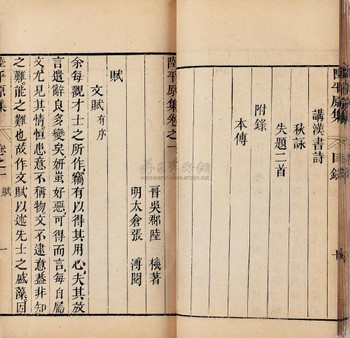 陸平原集 目錄
講漢書詩
秋詠
失題二首
附錄
本傳
陸平原集卷之一
晉吳郡陸 機著
明太倉張 溥閱
賦
文賦有序
余每觀才士之所作竊有以得其用心夫其放
言遣辭良多變矣妍蚩好惡可得而言每自屬
文尤見其情恒患意不稱物文不逮意蓋非知
之難能之難也故作文賦以述先士之盛藻因
陸平原集 卷之一 賦 一